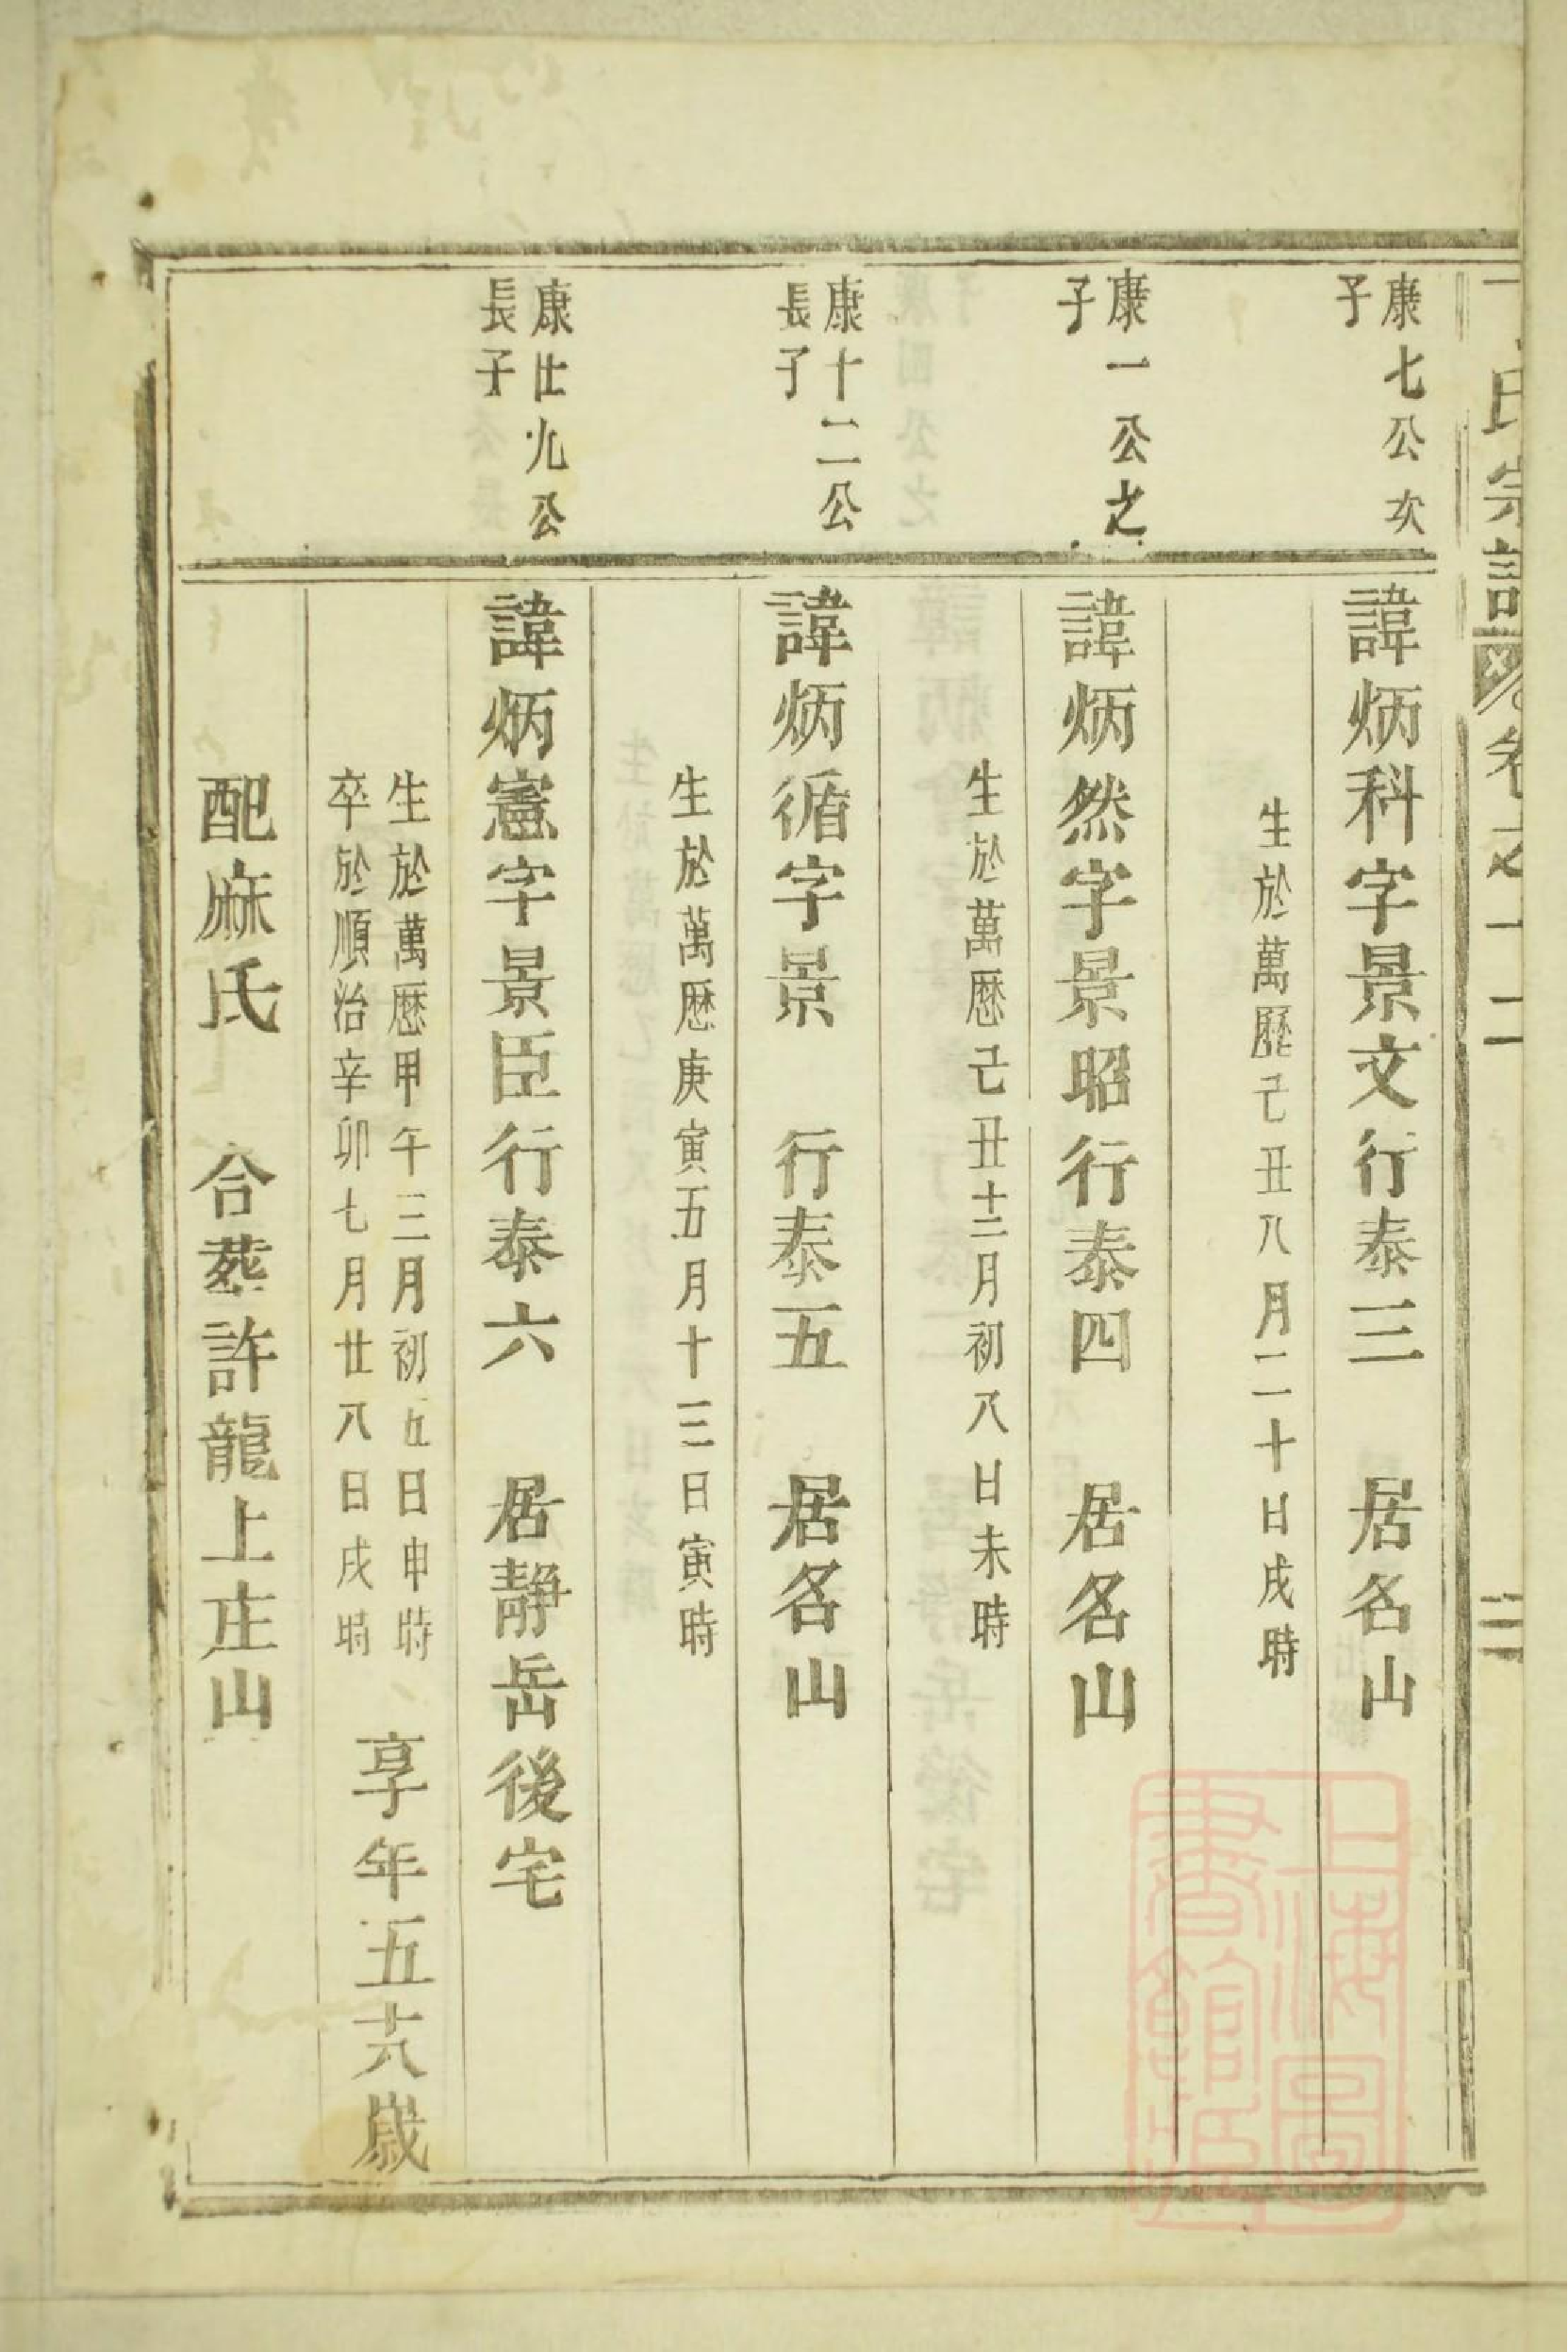 氏宗譜 卷之十二 三
康七公次
子
諱炳科字景文行泰三 居名山
生於萬歷己丑八月二十日戌時
康一公之
子
諱炳然字景昭行泰四 居名山
生於萬歷己丑十二月初八日未時
康十二公
長子
諱炳循字景 行泰五 居名山
生於萬歷庚寅五月十三日寅時
康廿九公
長子
諱炳憲字景臣行泰六 居靜岳後宅
生於萬歷甲午三月初五日申時
卒於順治辛卯七月廿八日戌時
享年五十八歲
配麻氏 合葬許龍上庄山
上海圖
書館藏